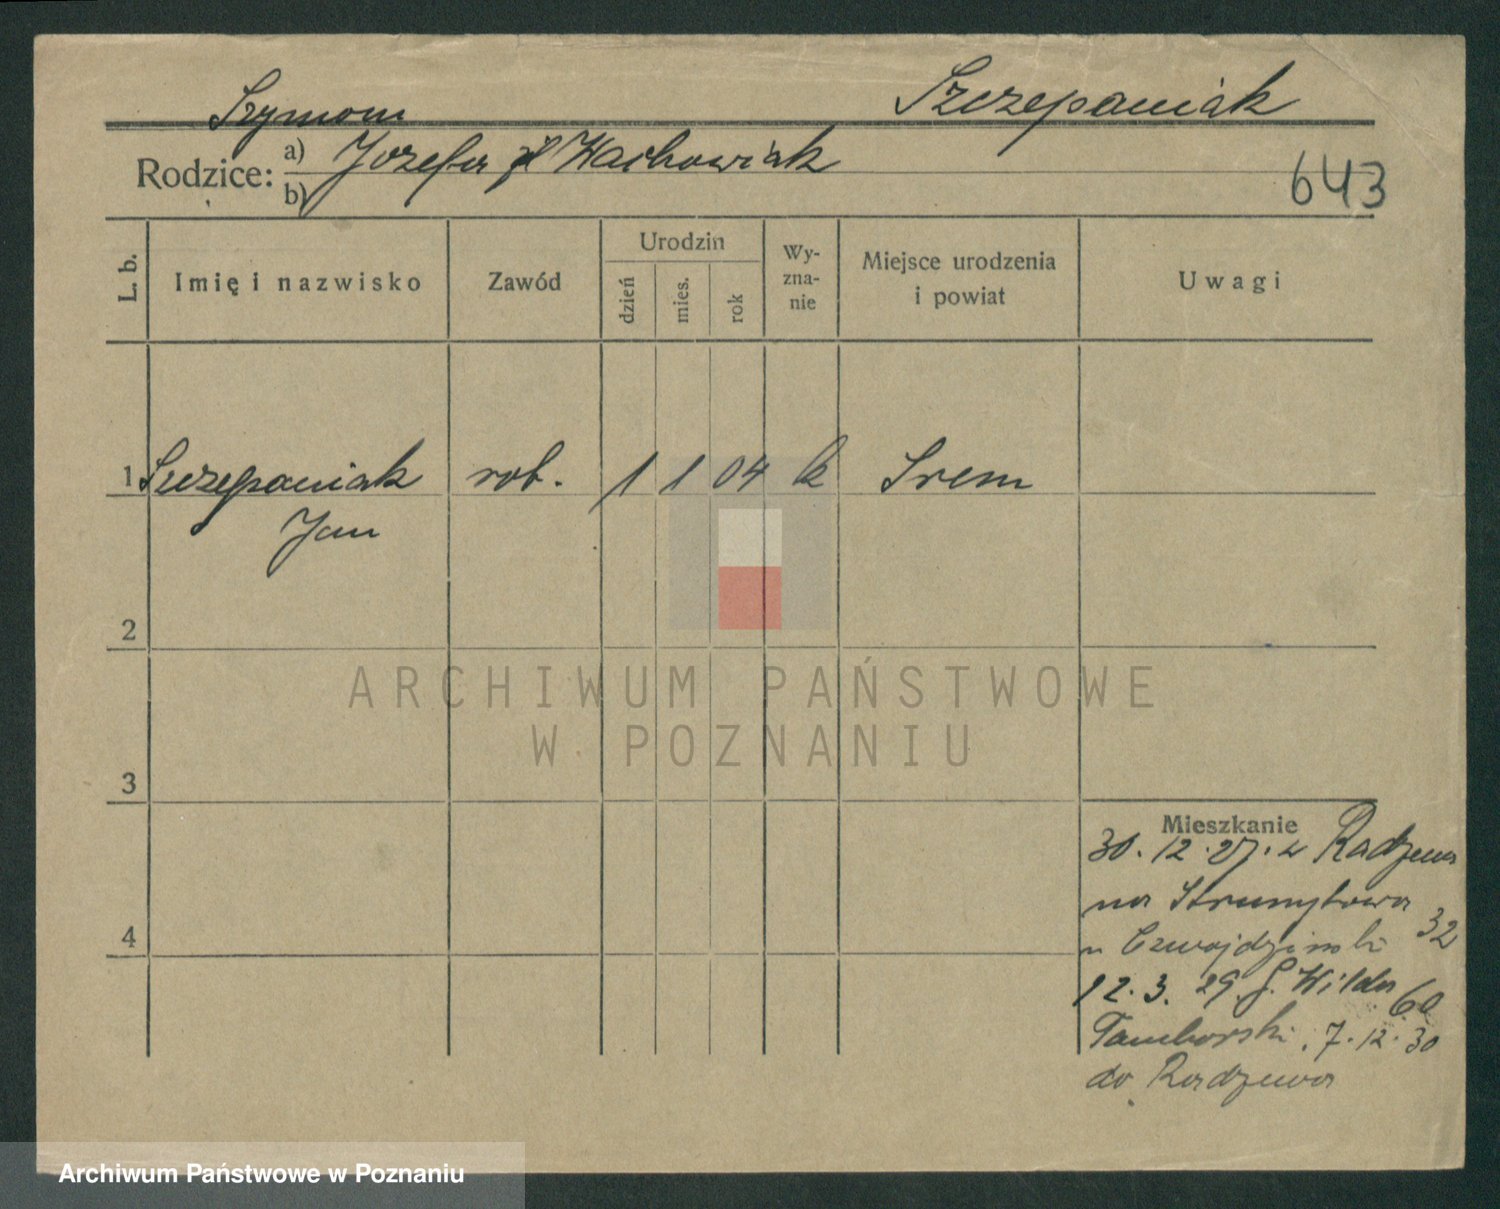 Szczepaniak
Szymon
Rodzice: a) Józefa Wachowiak
b)
643
L. b.
Imię i nazwisko
Zawód
Urodzin
dzień
mies.
rok
Wy-
zna-
nie
Miejsce urodzenia
i powiat
Uwagi
1 Szczepaniak rob. 1 1 04 k Srem
Jan
2
3
4
Mieszkanie
30.12.27. z Radzewa
na Strumykowa 32
u Czwojdziński
12.3.29. G. Wilda 60
Tamborski. 7.12.30
do Radzewa
ARCHIWUM PAŃSTWOWE
W POZNANIU
Archiwum Państwowe w Poznaniu